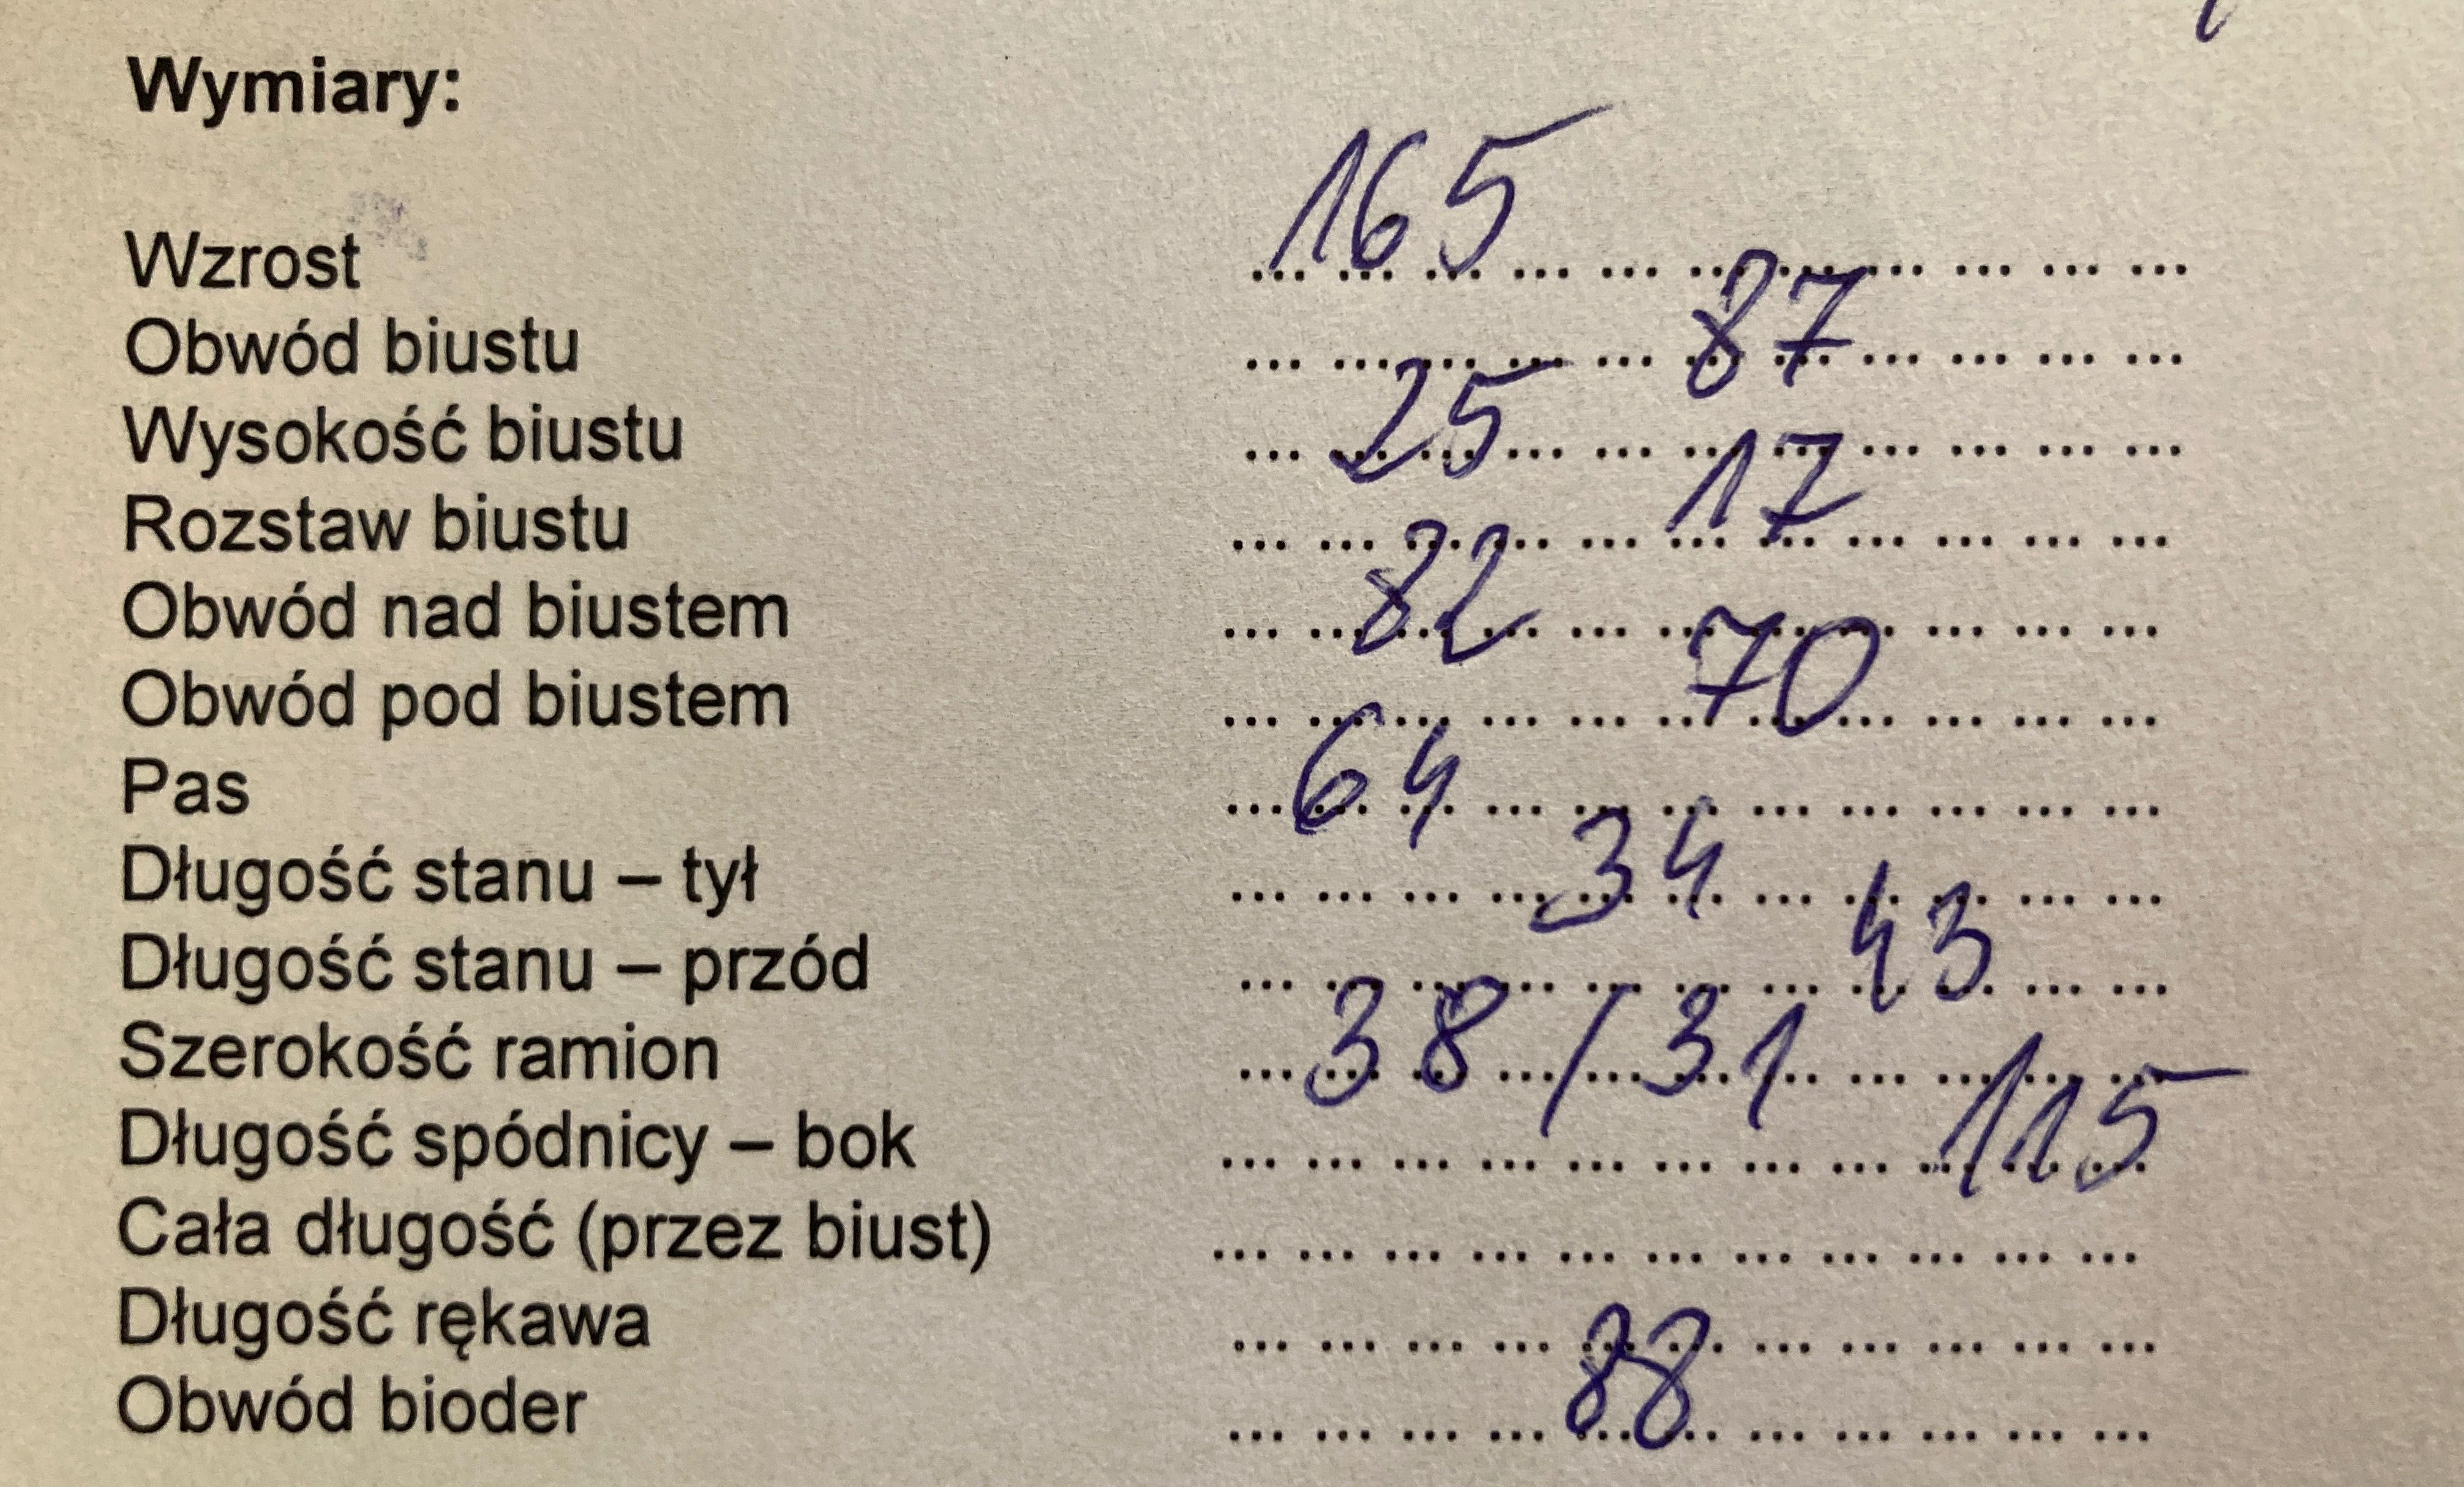 Wymiary:
Wzrost ... 165 ... ... ... ... ... ... ... ... ...
Obwód biustu ... ... ... ... ... 87 ... ... ... ...
Wysokość biustu ... 25 ... ... ... ... ... ... ... ...
Rozstaw biustu ... ... ... ... ... 17 ... ... ... ...
Obwód nad biustem ... 82 ... ... ... ... ... ... ...
Obwód pod biustem ... ... ... ... ... 70 ... ... ...
Pas ... 64 ... ... ... ... ... ... ... ...
Długość stanu – tył ... ... ... ... 34 ... ... ... ... ...
Długość stanu – przód ... ... ... ... ... ... ... 43 ... ...
Szerokość ramion ... 38 / 31 ... ... ... ...
Długość spódnicy – bok ... ... ... ... ... ... ... ... 115
Cała długość (przez biust) ... ... ... ... ... ... ... ... ... ... ...
Długość rękawa ... ... ... ... ... ... ... ... ... ... ...
Obwód bioder ... ... ... ... 88 ... ... ... ... ...